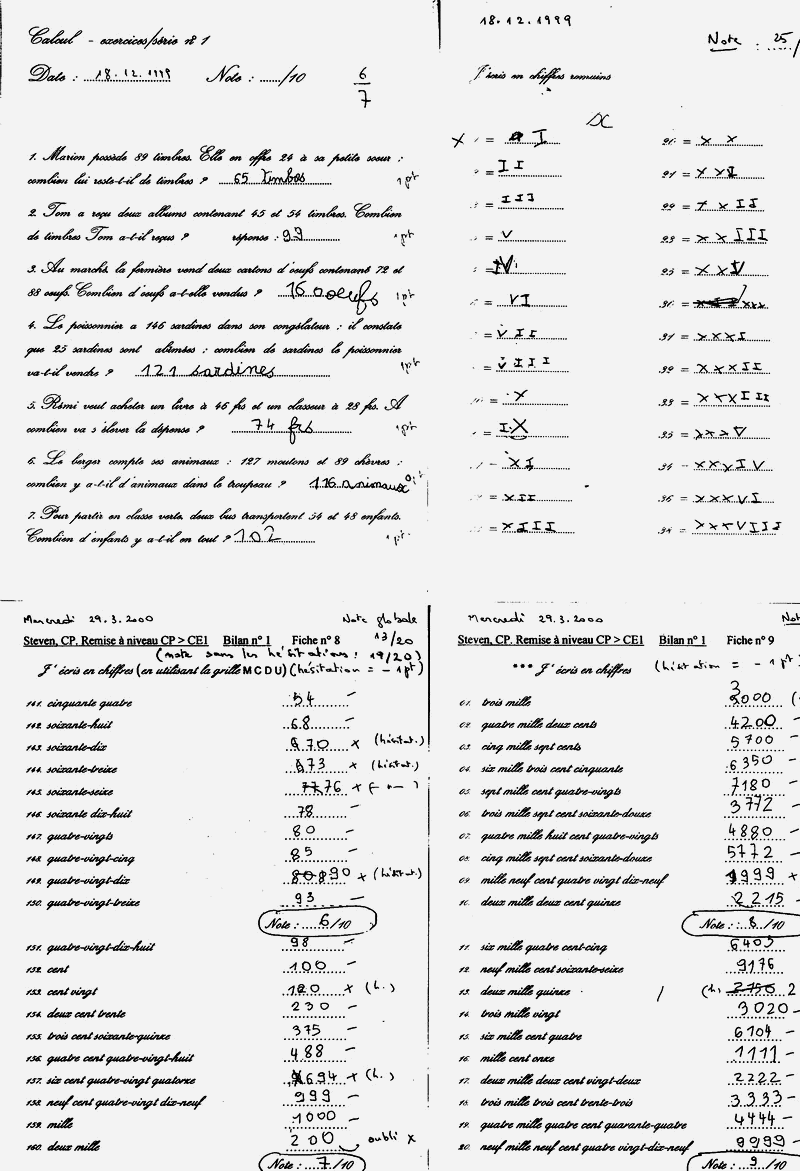 Calcul - exercices/série n° 1
Date : 18.12.1999 Note : ....../10 6/7
1. Marion possède 89 timbres. Elle en offre 24 à sa petite soeur :
combien lui reste-t-il de timbres ? 65 timbres 1 pt
2. Tom a reçu deux albums contenant 45 et 54 timbres. Combien
de timbres Tom a-t-il reçus ? réponse : 99 1 pt
3. Au marché, la fermière vend deux cartons d'oeufs contenant 72 et
88 oeufs. Combien d'oeufs a-t-elle vendus ? 160 oeufs 1 pt
4. Le poissonnier a 146 sardines dans son congélateur : il constate
que 25 sardines sont abîmées : combien de sardines le poissonnier
va-t-il vendre ? 121 sardines 1 pt
5. Rémi veut acheter un livre à 46 frs et un classeur à 28 frs. A
combien va s'élever la dépense ? 74 frs 1 pt
6. Le berger compte ses animaux : 127 moutons et 89 chèvres :
combien y a-t-il d'animaux dans le troupeau ? 116 animaux
7. Pour partir en classe verte, deux bus transportent 54 et 48 enfants.
Combien d'enfants y a-t-il en tout ? 102 1 pt.
18.12.1999
Note : 25/
J'écris en chiffres romains
X = I
= II
= III
= V
= IV
= VI
= VII
= VIII
= X
= IX
= XI
= XII
= XIII
20 = XX
21 = XXI
22 = XXII
23 = XXIII
25 = XXV
30 = XXX
31 = XXXI
32 = XXXII
33 = XXXIII
35 = XXXV
34 = XXXIV
36 = XXXVI
38 = XXXVIII
Mercredi 29.3.2000 Note globale
Steven, CP. Remise à niveau CP > CE1 Bilan n° 1 Fiche n° 8 13/20
(note sans les hésitations : 19/20)
J'écris en chiffres (en utilisant la grille MCDU) (hésitation = - 1 pt)
141. cinquante quatre 54 –
142. soixante-huit 68 –
143. soixante-dix 70 x (hésitat.)
144. soixante-treize 73 x (hésitat.)
145. soixante-seize 76 x (– " – )
146. soixante dix-huit 78 –
147. quatre-vingts 80 –
148. quatre-vingt-cinq 85 –
149. quatre-vingt-dix 90 x (hésitat.)
150. quatre-vingt-treize 93 –
Note : 6/10
151. quatre-vingt-dix-huit 98 –
152. cent 100 –
153. cent vingt 120 x (h.)
154. deux cent trente 230 –
155. trois cent soixante-quinze 375 –
156. quatre cent quatre-vingt-huit 488 –
157. six cent quatre-vingt quatorze 694 x (h.)
158. neuf cent quatre-vingt dix-neuf 999 –
159. mille 1000 –
160. deux mille 200 oubli x
Note : 7/10
Mercredi 29.3.2000 Not
Steven, CP. Remise à niveau CP > CE1 Bilan n° 1 Fiche n° 9
*** J'écris en chiffres (hésitation = - 1 pt)
01. trois mille 3000
02. quatre mille deux cents 4200 –
03. cinq mille sept cents 5700 –
04. six mille trois cent cinquante 6350 –
05. sept mille cent quatre-vingts 7180 –
06. trois mille sept cent soixante-douze 3772 –
07. quatre mille huit cent quatre-vingts 4880 –
08. cinq mille sept cent soixante-douze 5772 –
09. mille neuf cent quatre vingt dix-neuf 1999 x
10. deux mille deux cent quinze 2215 –
Note : 8/10
11. six mille quatre cent-cinq 6405 –
12. neuf mille cent soixante-seize 9176
13. deux mille quinze / (h.) 2750 2
14. trois mille vingt 3020 –
15. six mille cent quatre 6104 –
16. mille cent onze 1111 –
17. deux mille deux cent vingt-deux 2222 –
18. trois mille trois cent trente-trois 3333 –
19. quatre mille quatre cent quarante-quatre 4444 –
20. neuf mille neuf cent quatre vingt-dix-neuf 9999 –
Note : 9/10